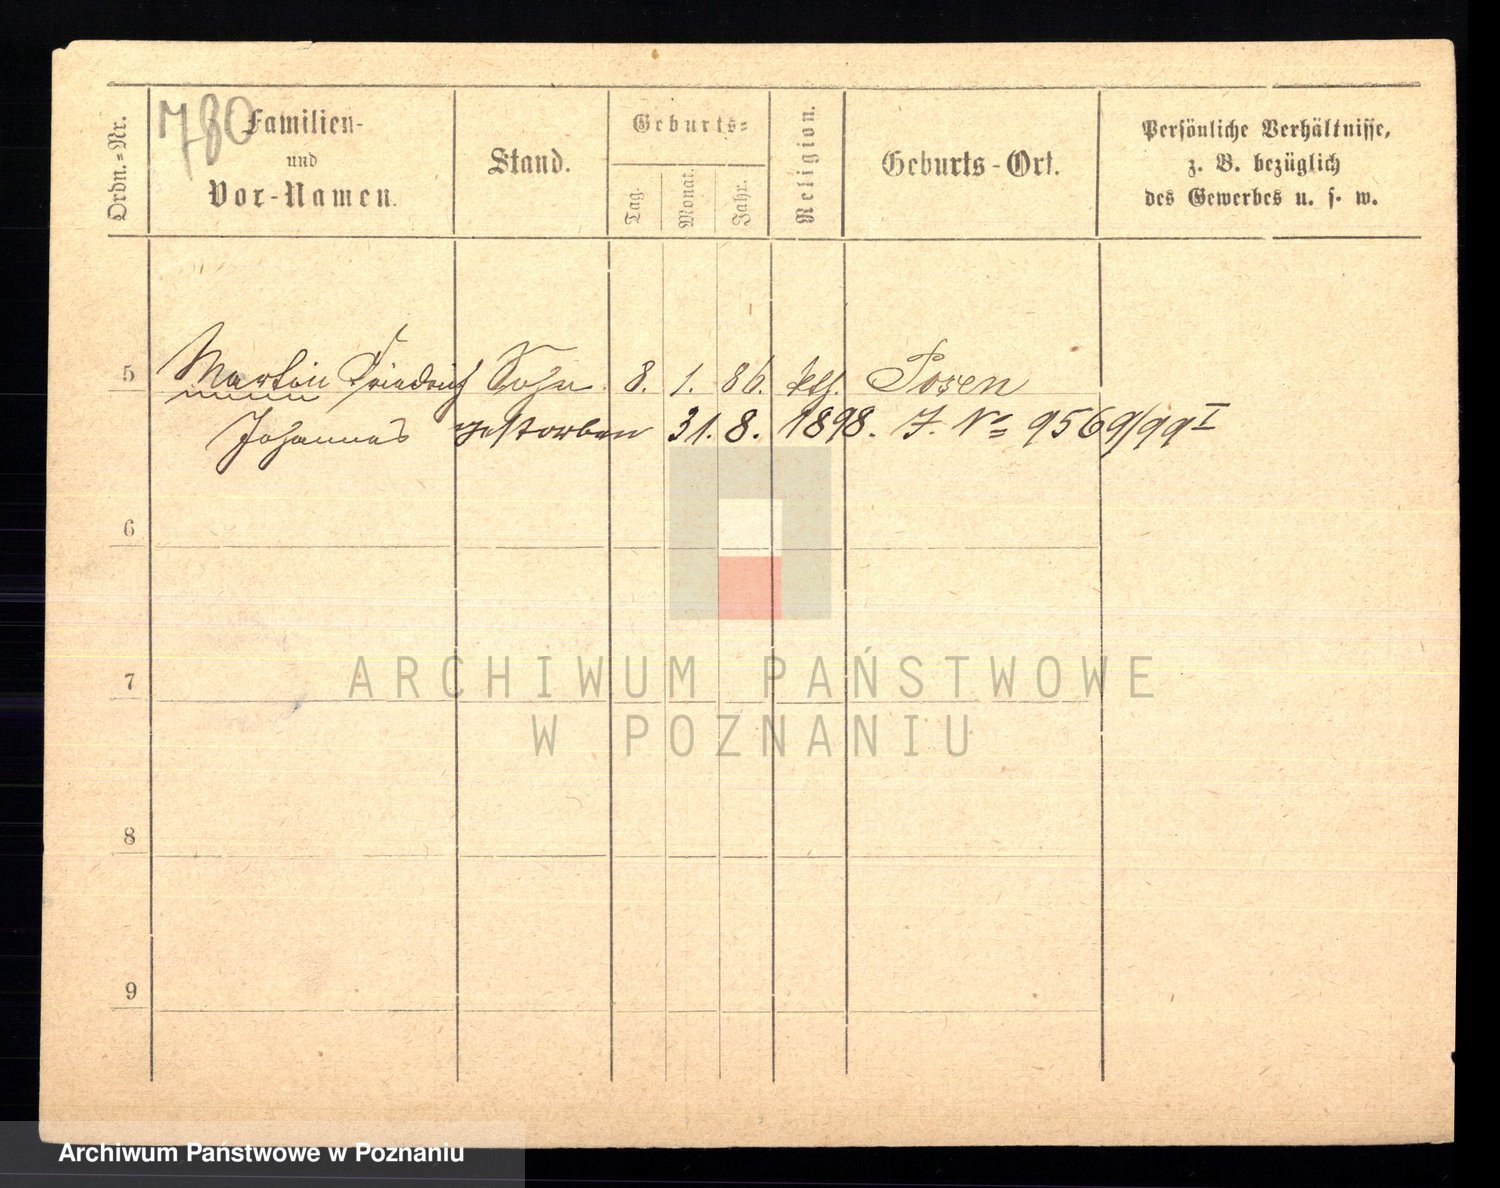 780
Ordn.-Nr.
Familien-
und
Vor-Namen.
Stand.
Geburts-
Tag.
Monat.
Jahr.
Religion.
Geburts-Ort.
Persönliche Verhältnisse,
z. B. bezüglich
des Gewerbes u. s. w.
5 Martin Friedrich Sohn 8. 1. 86. kth. Posen
Johannes gestorben 31. 8. 1898. J. No 9569/99 I
6
7
ARCHIWUM PAŃSTWOWE
W POZNANIU
8
9
Archiwum Państwowe w Poznaniu